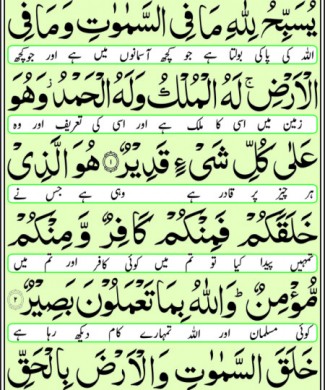 يُسَبِّحُ لِلّٰهِ مَا فِى السَّمٰوٰتِ وَمَا فِى
اللہ کی پاکی بولتا ہے جو کچھ آسمانوں میں ہے اور جو کچھ
الْاَرْضِ ۚ لَهُ الْمُلْكُ وَلَهُ الْحَمْدُ ۫ وَهُوَ
زمین میں اسی کا ملک ہے اور اسی کی تعریف اور وہ
عَلٰى كُلِّ شَىْءٍ قَدِيْرٌ ﴿۱﴾ هُوَ الَّذِىْ
ہر چیز پر قادر ہے وہی ہے جس نے
خَلَقَكُمْ فَمِنْكُمْ كَافِرٌ وَّمِنْكُمْ
تمہیں پیدا کیا تو تم میں کوئی کافر اور تم میں
مُّؤْمِنٌ ؕ وَاللّٰهُ بِمَا تَعْمَلُوْنَ بَصِيْرٌ ﴿۲﴾
کوئی مسلمان اور اللہ تمہارے کام دیکھ رہا ہے
خَلَقَ السَّمٰوٰتِ وَالْاَرْضَ بِالْحَقِّ